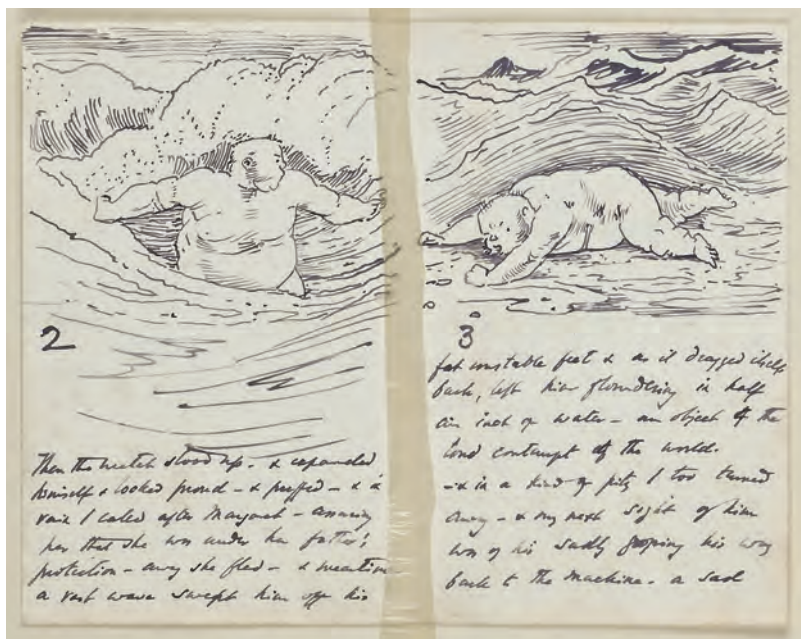 2
Then the wretch stood up - & expanded
himself & looked proud - & puffed - & in
vain I called after Margaret - assuring
her that she was under her father's
protection - away she fled - & meantime
a vast wave swept him off his
3
fat unstable feet & as it dragged itself
back, left him floundering in half
an inch of water - an object of the
loud contempt of the world.
- & in a kind of pity I too turned
away - & my next sight of him
was of his sadly groping his way
back to the machine. a sad